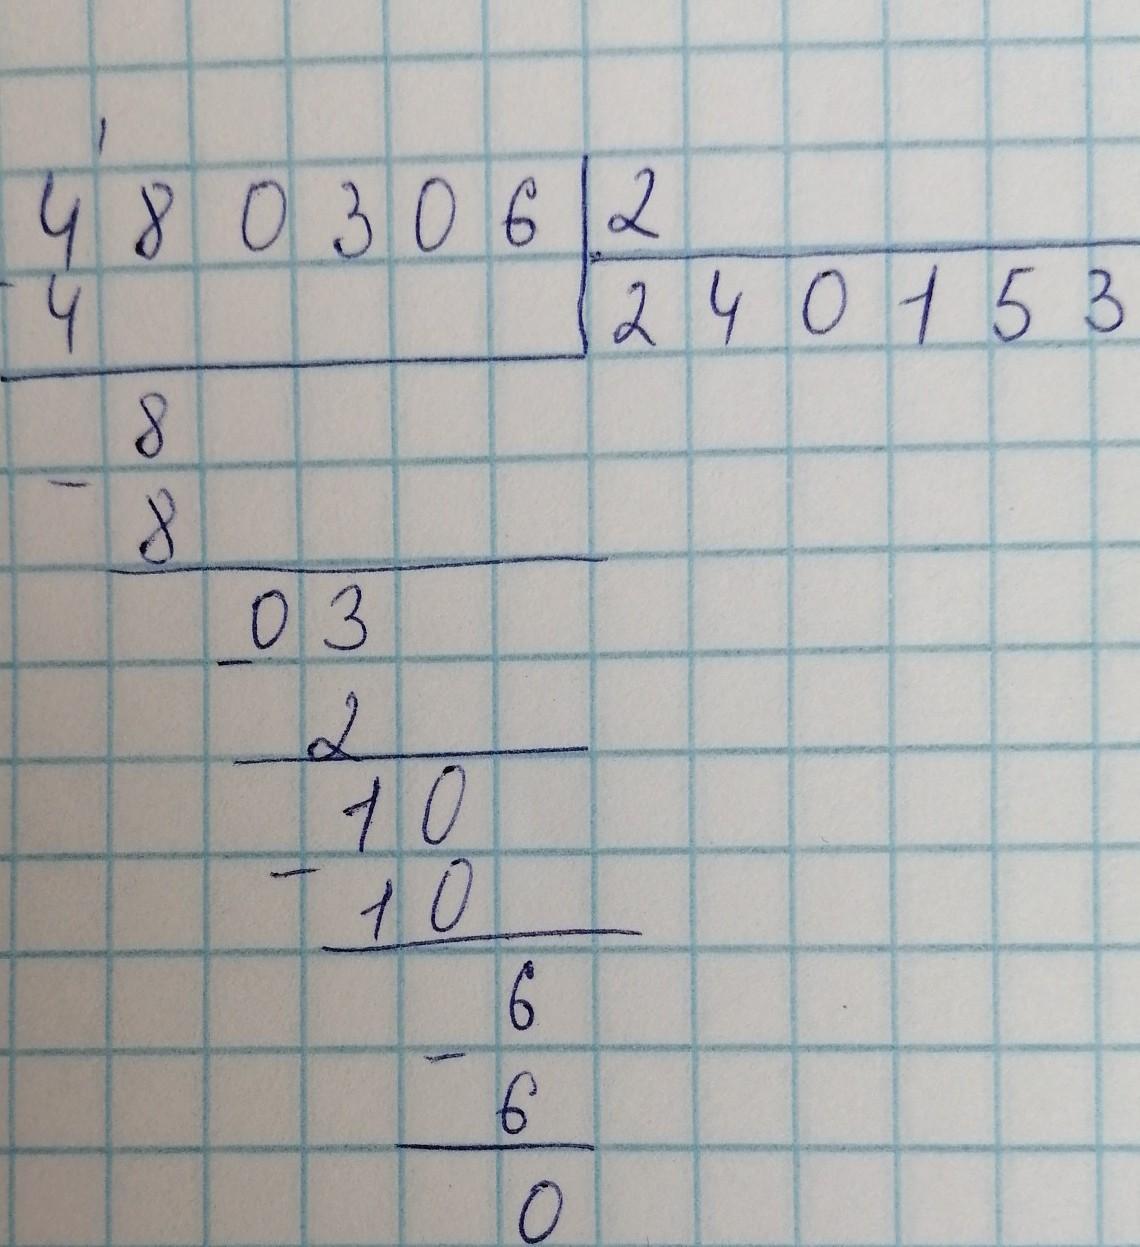 480306 2
- 4 240153
8
- 8
03
- 2
10
- 10
6
- 6
0